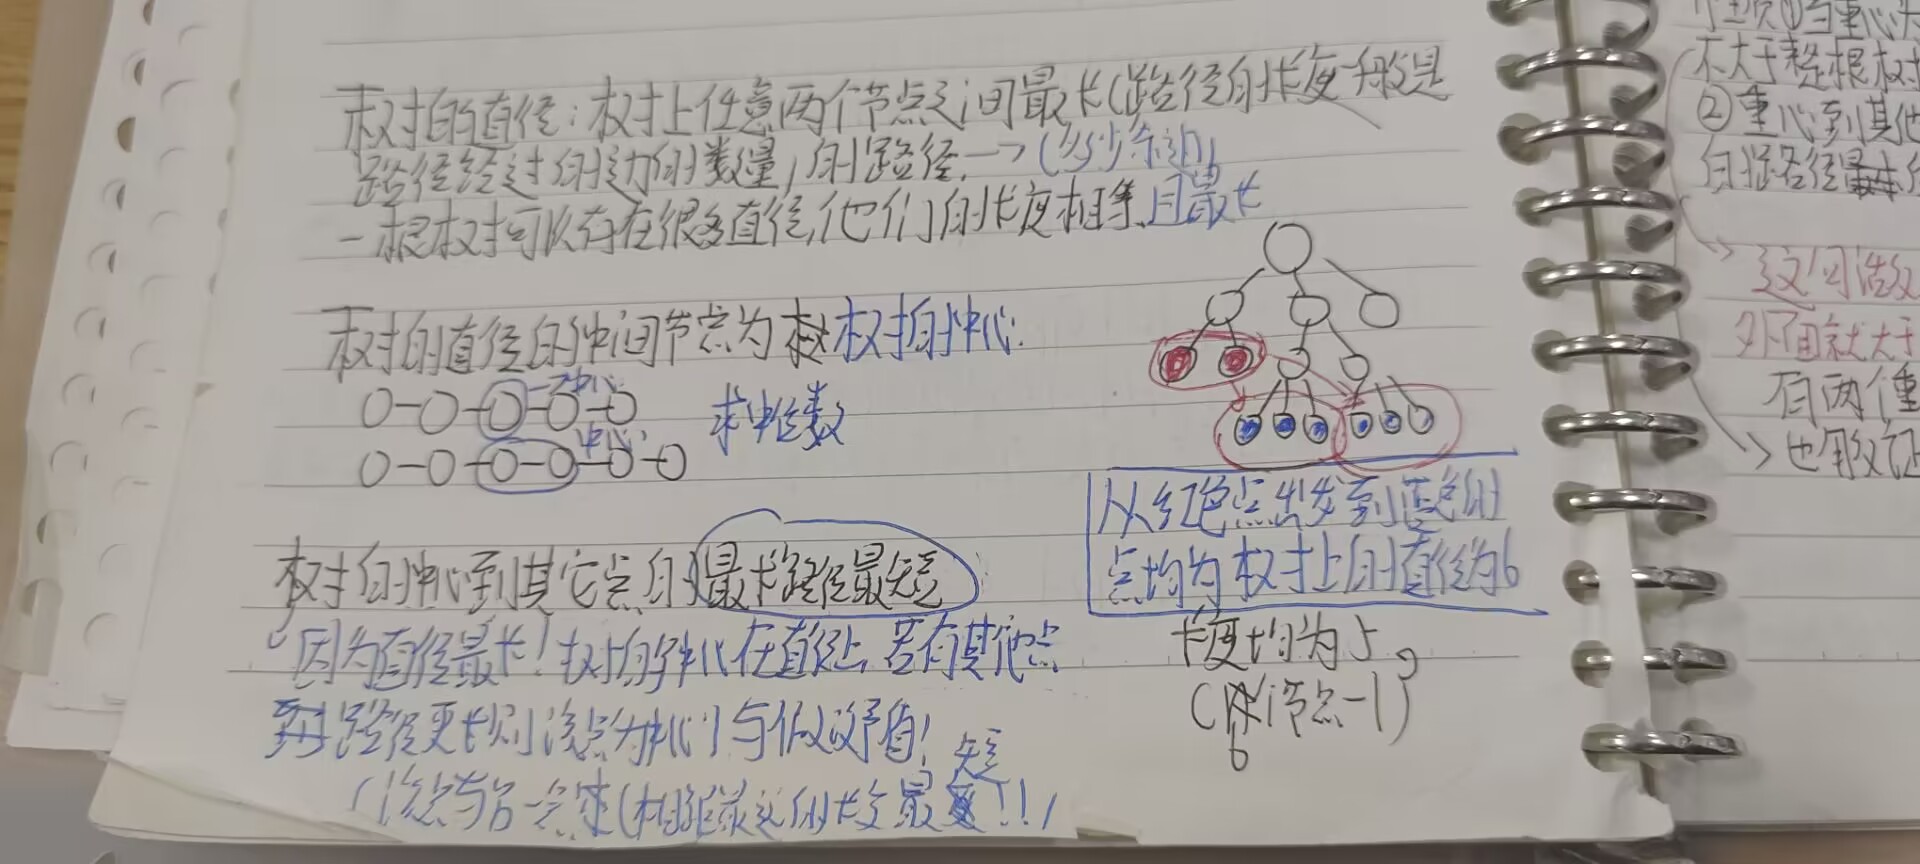 树的直径：树上任意两个节点之间最长(路径的长度一般是
路径经过的边的数量)的路径.→(多少条边)
一根树可以存在很多直径,他们的长度相等.且最长
树的直径的中间节点为树的中心:
中心
求中位数
中心
从红色点出发到蓝色的
点均为树上的直径为6
长度均为5
(6个节点-1)
树的中心到其它点的最长路径最短
因为直径最长!树的中心在直径上,若有其他点
路径更长则该点为中心与假设矛盾!
(该点与另一点(相距最远的长度最短!!)
不大于整根树
②重心到其他
的路径
这句话
外面就大于
有两个重
也